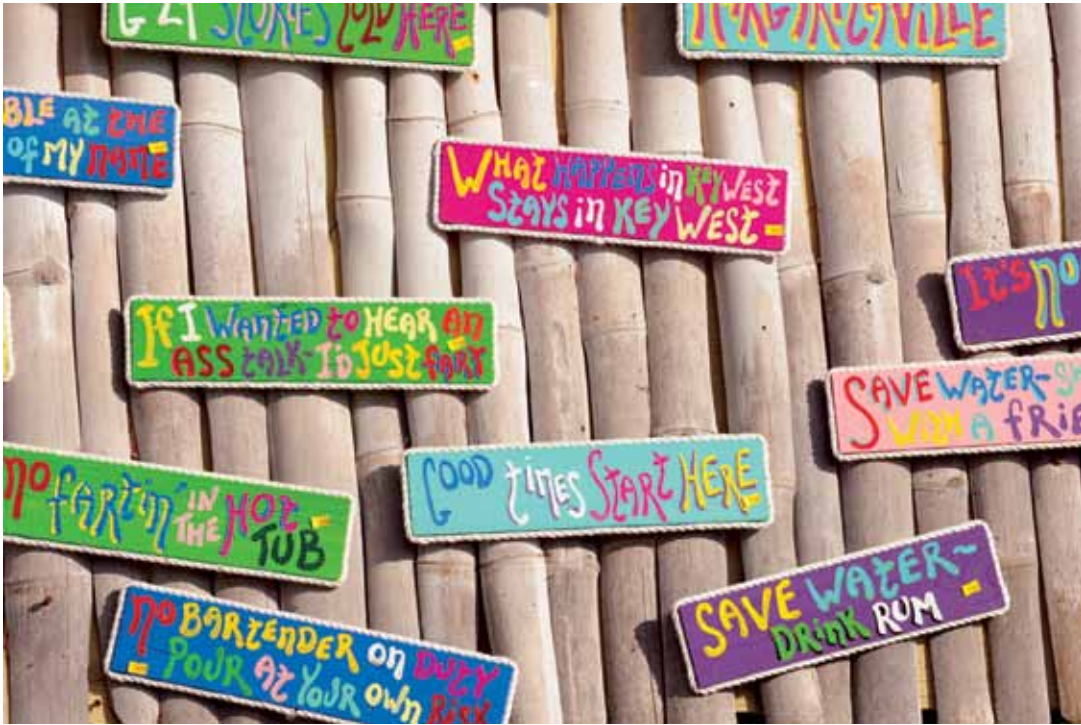 STORIES TOLD HERE
MARGARITAVILLE
BLE AT THE
OF MY NAME
WHAT HAPPENS in KEY WEST
STAYS in KEY WEST
It's no
If I WANTED to HEAR AN
ASS talk-I'D JUST fart
SAVE WATER-
With A fRIE
no fartin' IN THE HOT TUB
GOOD times START HERE
SAVE WATER-
DRINK RUM
no BARTENDER on DUTY
POUR At YOUR OWN RISK